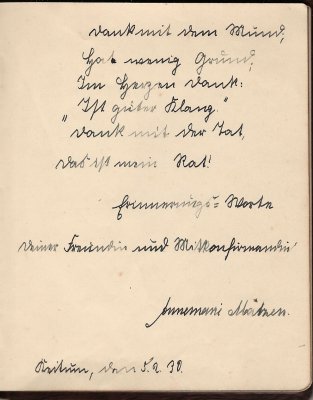 Dank mit dem Mund,
Hat wenig Grund,
Im Herzen Dank:
"Ist guter Klang."
Dank mit der Tat,
Das ist mein Rat!
Erinnerungs=Worte
deiner Freundin und Mitkonfirmandin
Annemarie
Keitum, den 5.2.30.